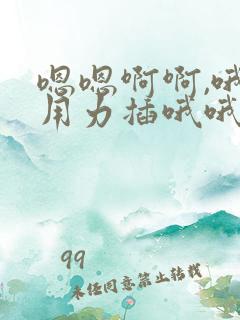 嗯嗯啊啊,哦
用力插哦哦
99
未经同意禁止转载